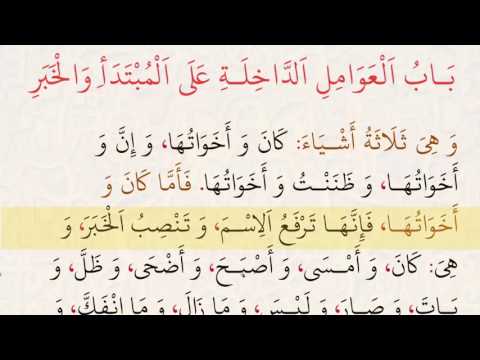 بَابُ اَلْعَوَامِلِ اَلدَّاخِلَةِ عَلَى اَلْمُبْتَدَأِ وَالْخَبَرِ
وَ هِيَ ثَلَاثَةُ أَشْيَاءَ: كَانَ وَ أَخَوَاتُهَا، وَ إِنَّ وَ
أَخَوَاتُهَا، وَ ظَنَنْتُ وَ أَخَوَاتُهَا. فَأَمَّا كَانَ وَ
أَخَوَاتُهَا، فَإِنَّهَا تَرْفَعُ اَلِاسْمَ، وَ تَنْصِبُ اَلْخَبَرَ، وَ
هِيَ: كَانَ، وَ أَمْسَى، وَ أَصْبَحَ، وَ أَضْحَى، وَ ظَلَّ، وَ
بَاتَ، وَ صَارَ، وَ لَيْسَ، وَ مَا زَالَ، وَ مَا اِنْفَكَّ، وَ